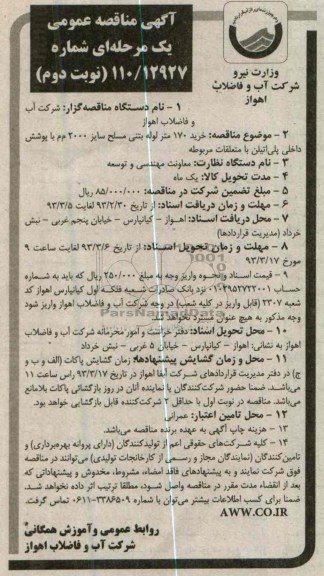 آگهی مناقصه عمومی
یک مرحله‌ای شماره
۱۱۰/۱۲۹۲۷ (نوبت دوم)
وزارت نیرو
شرکت آب و فاضلاب
اهواز
۱ - نام دستگاه مناقصه‌گزار: شرکت آب
و فاضلاب اهواز
۲ - موضوع مناقصه: خرید ۱۷۰ متر لوله بتنی مسلح سایز ۲۰۰۰ م‌م با پوشش
داخلی پلی‌اتیلن با متعلقات مربوطه
۳ - نام دستگاه نظارت: معاونت مهندسی و توسعه
۴ - مدت تحویل کالا: یک ماه
۵ - مبلغ تضمین شرکت در مناقصه: ۸۵/۰۰۰/۰۰۰ ریال
۶ - مهلت و زمان دریافت اسناد: از تاریخ ۹۳/۲/۳۰ لغایت ۹۳/۳/۵
۷ - محل دریافت اسناد: اهواز - کیانپارس - خیابان پنجم غربی - نبش
خرداد (مدیریت قراردادها)
۸ - مهلت و زمان تحویل اسناد: از تاریخ ۹۳/۳/۶ لغایت ساعت ۹
مورخ ۹۳/۳/۱۷
۹ - قیمت اسناد و نحوه واریز وجه به مبلغ ۲۵۰/۰۰۰ ریال که باید به شماره
حساب ۰۱۰۲۹۵۲۷۲۲۰۰۱ نزد بانک صادرات شعبه فلکه اول کیانپارس اهواز کد
شعبه ۲۳۰۷ (قابل واریز در کلیه شعب) در وجه شرکت آب و فاضلاب اهواز واریز شود
وجه مذکور به هیچ عنوان مسترد نخواهد شد.
۱۰ - محل تحویل اسناد: دفتر حراست و امور محرمانه شرکت آب و فاضلاب
اهواز به نشانی: اهواز - کیانپارس - خیابان ۵ غربی - نبش خرداد
۱۱ - محل و زمان گشایش پیشنهادها: زمان گشایش پاکات (الف و ب و
ج) در دفتر مدیریت قراردادهای شرکت آبفا اهواز در تاریخ ۹۳/۳/۱۷ راس ساعت ۱۱
می‌باشد. ضمنا حضور شرکت‌کنندگان یا نماینده آنان در روز بازگشائی پاکات بلامانع
می‌باشد. مناقصه در نوبت اول با حداقل ۲ شرکت‌کننده قابل بازگشایی خواهد بود.
۱۲ - محل تامین اعتبار: عمرانی
۱۳ - هزینه چاپ آگهی به عهده برنده مناقصه می‌باشد.
۱۴ - کلیه شرکت‌های حقوقی اعم از تولیدکنندگان (دارای پروانه بهره‌برداری) و
تامین‌کنندگان (نمایندگان مجاز و رسمی از کارخانجات تولیدی) می‌توانند در مناقصه
فوق شرکت نمایند و به پیشنهادهای فاقد امضاء، مشروط، مخدوش و پیشنهاداتی که
بعد از انقضاء مدت مقرر در مناقصه واصل شود، مطلقا ترتیب اثر داده نخواهد شد.
ضمنا برای کسب اطلاعات بیشتر می‌توان با شماره ۳۳۸۶۵۰۹-۰۶۱۱ تماس گرفت.
AWW.CO.IR
روابط عمومی و آموزش همگانی
شرکت آب و فاضلاب اهواز